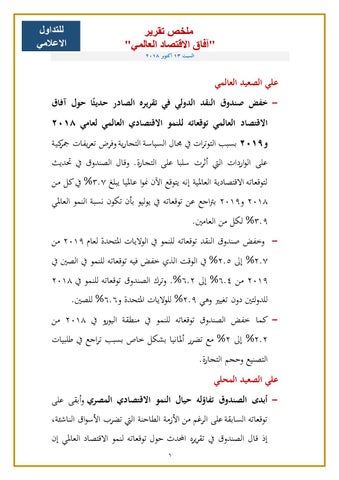 للتداول
الاعلامي
ملخص تقرير
"آفاق الاقتصاد العالمي"
السبت ١٣ أكتوبر ٢٠١٨
علي الصعيد العالمي
– خفض صندوق النقد الدولي في تقريره الصادر حديثًا حول آفاق
الاقتصاد العالمي توقعاته للنمو الاقتصادي العالمي لعامي ٢٠١٨
و٢٠١٩ بسبب التوترات في مجال السياسة التجارية وفرض تعريفات جمركية
على الواردات التي أثرت سلبا على التجارة. وقال الصندوق في تحديث
لتوقعاته الاقتصادية العالمية إنه يتوقع الآن نموا عالميا يبلغ ٣.٧% في كل من
٢٠١٨ و٢٠١٩ بتراجع عن توقعاته في يوليو بأن تكون نسبة النمو العالمي
٣.٩% لكل من العامين.
– وخفض صندوق النقد توقعاته للنمو في الولايات المتحدة لعام ٢٠١٩ من
٢.٧% إلى ٢.٥% في الوقت الذي خفض فيه توقعاته للنمو في الصين في
٢٠١٩ من ٦.٤% إلى ٦.٢%. وترك الصندوق توقعاته للنمو في ٢٠١٨
للدولتين دون تغيير وهي ٢.٩% للولايات المتحدة و٦.٦% للصين.
– كما خفض الصندوق توقعاته للنمو في منطقة اليورو في ٢٠١٨ من
٢.٢% إلى ٢% مع تضرر ألمانيا بشكل خاص بسبب تراجع في طلبيات
التصنيع وحجم التجارة.
علي الصعيد المحلي
– أبدى الصندوق تفاؤله حيال النمو الاقتصادي المصري وأبقى على
توقعاته السابقة على الرغم من الأزمة الطاحنة التي تضرب الأسواق الناشئة،
إذ قال الصندوق في تقريره المحدث حول توقعاته لنمو الاقتصاد العالمي إن
١